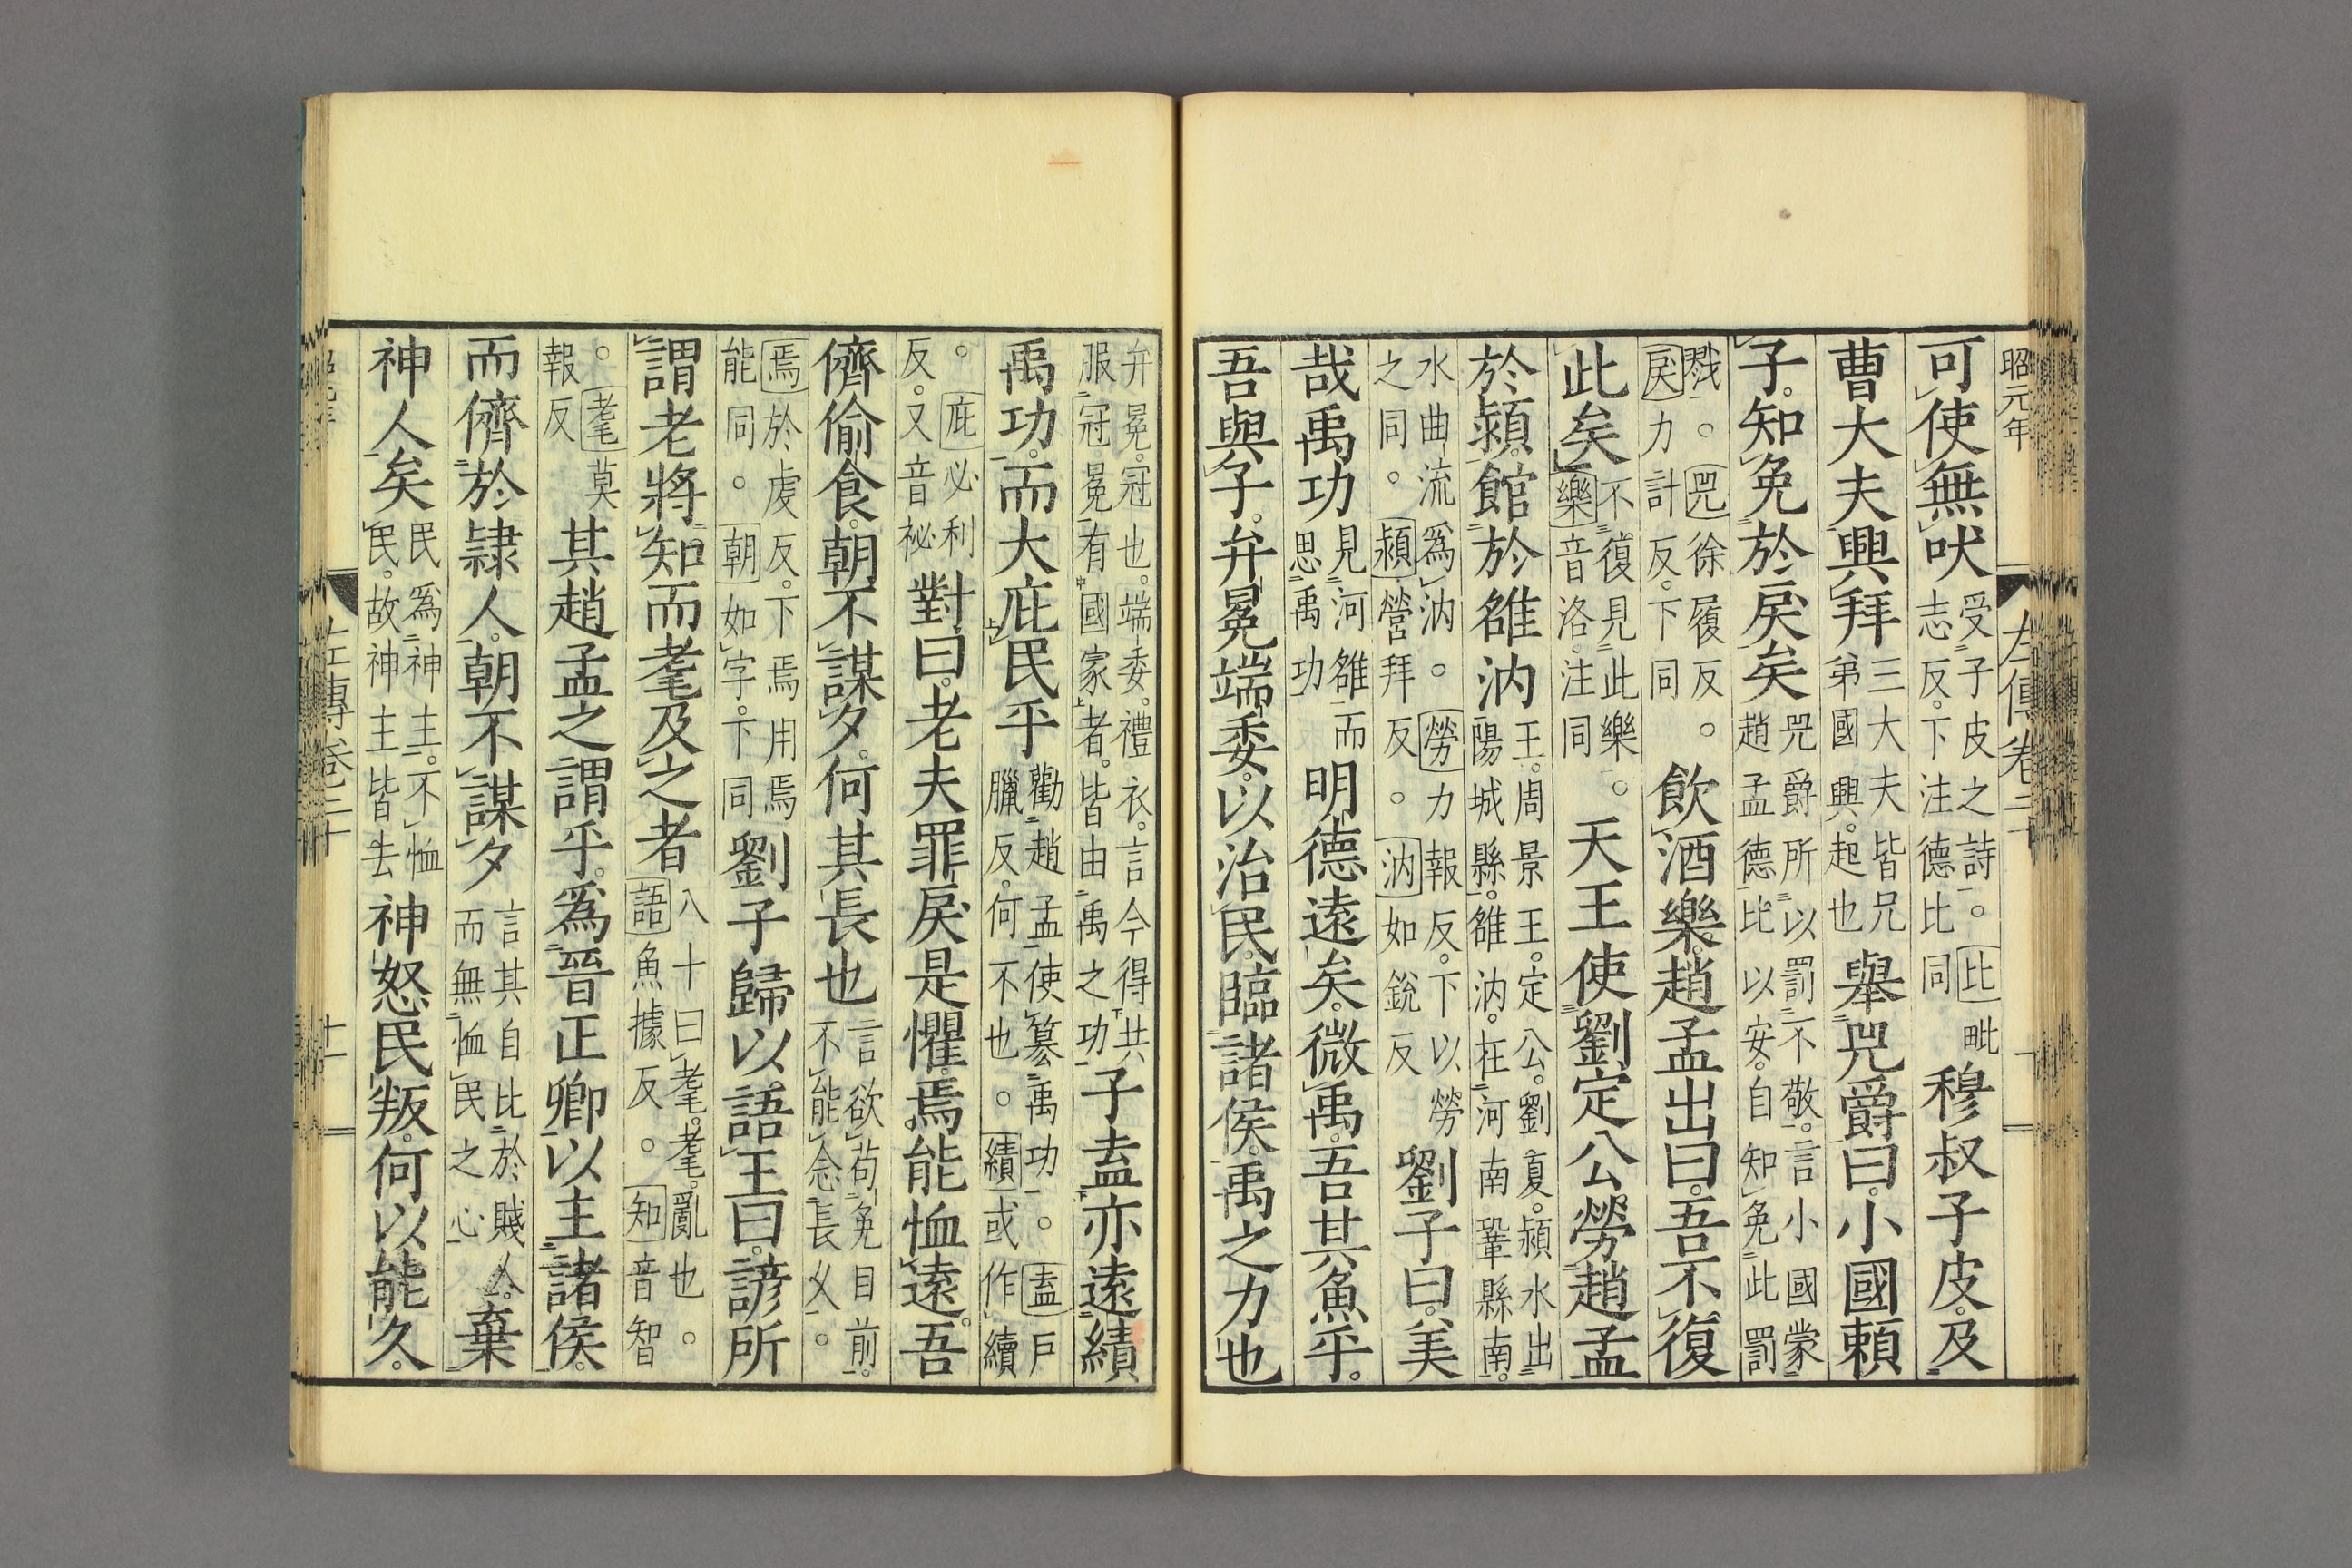 昭元年
左傳卷二十
可使無吠受子皮之詩。比毗志反。下注德比同穆叔子皮。及
曹大夫興拜三大夫皆兄弟國興。起也舉兕爵曰。小國賴
子。知免於戾矣兕爵所以罰不敬。言小國蒙趙孟德比以安。自知免此罰
戮。兕徐履反。戾力計反。下同飲酒樂。趙孟出曰。吾不復
此矣不復見此樂。樂音洛。注同天王使劉定公勞趙孟
於潁。館於雒汭王。周景王。定公。劉夏。潁水出陽城縣。雒汭。在河南鞏縣南。
水曲流爲汭。勞力報反。下以勞之同。潁營拜反。汭如銳反劉子曰。美
哉禹功見河雒而思禹功明德遠矣。微禹。吾其魚乎。
吾與子。弁冕端委。以治民。臨諸侯。禹之力也
弁冕。冠也。端委。禮衣。言今得共服冠冕有國家者。皆由禹之功子盍亦遠績
禹功。而大庇民乎勸趙孟使纂禹功。盍戶臘反。何不也。績或作續
。庇必利反。又音祕對曰。老夫罪戾是懼。焉能恤遠。吾
儕偷食。朝不謀夕。何其長也言欲苟免目前。不能念長久。
焉於虔反。下焉用焉能同。朝如字。下同劉子歸以語王曰。諺所
謂老將知而耄及之者八十曰耄。耄。亂也。語魚據反。知音智
。耄莫報反其趙孟之謂乎。爲晉正卿以主諸侯。
而儕於隷人。朝不謀夕言其自比於賤人。而無恤民之心棄
神人矣民爲神主。不恤民。故神主皆去神怒民叛。何以能久。
左傳卷二十
十一